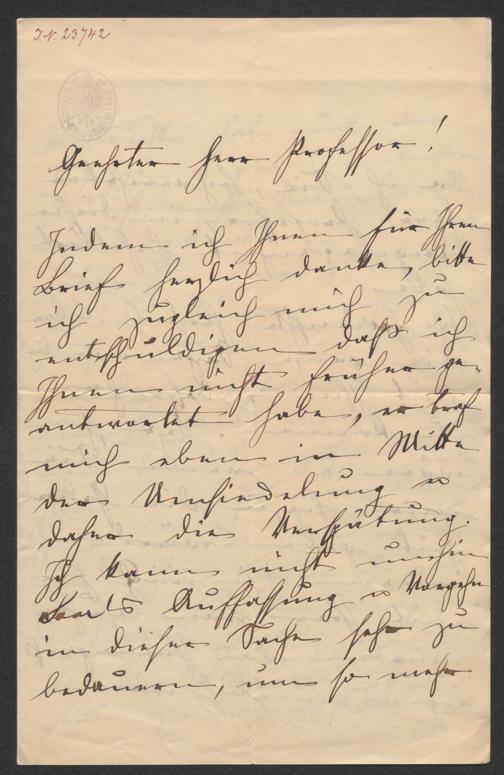 I.N. 23742
Geehrter Herr Professor!
Indem ich Ihnen für Ihren
Brief herzlich danke, bitte
ich zugleich mich zu
entschuldigen daß ich
Ihnen nicht früher ge-
antwortet habe, er traf
mich eben in Mitte
der Umsiedelung u
daher die Verspätung.
Ich kann nicht umhin
Saars Auffassung u Vorgehn
in dieser Sache sehr zu
bedauern, um so mehr